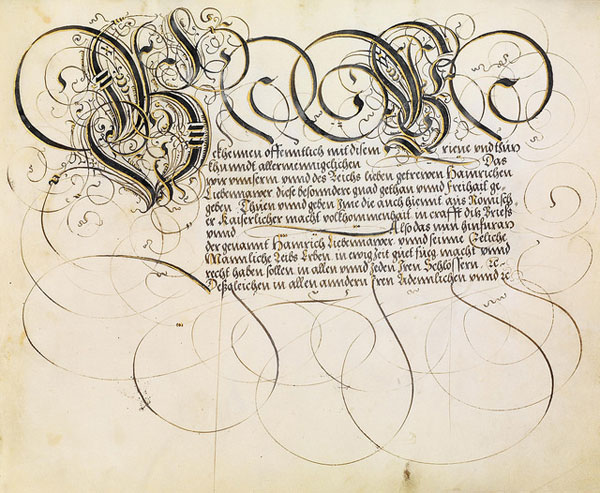 Beckhennen offenntlich mit disem Brieue vnd thün
khundt allermennigclichen Das
wir vnserm vnnd des Reichs lieben getrewen Hainrichen
Liebenawer diese besonndere gnad gethan vnnd Freihait ge„
geben. Thuen vnnd geben Ime die auch hiemit aus Römisch„
er Kaiserlicher macht volkhommenhait in crafft diß Brieffs
vnnd Also das nun hinfüran
der genannt Hainrich Liebennawer vnnd seinne Eeliche
Männliche Leibs Erben. in ewig Zeit guet fueg. macht vnnd
recht haben sollen in allen vnnd Jeden Iren Schlössern. ꝛc.
Deßgleichen in allen anndern Iren Aidennlichen vnnd ꝛc.